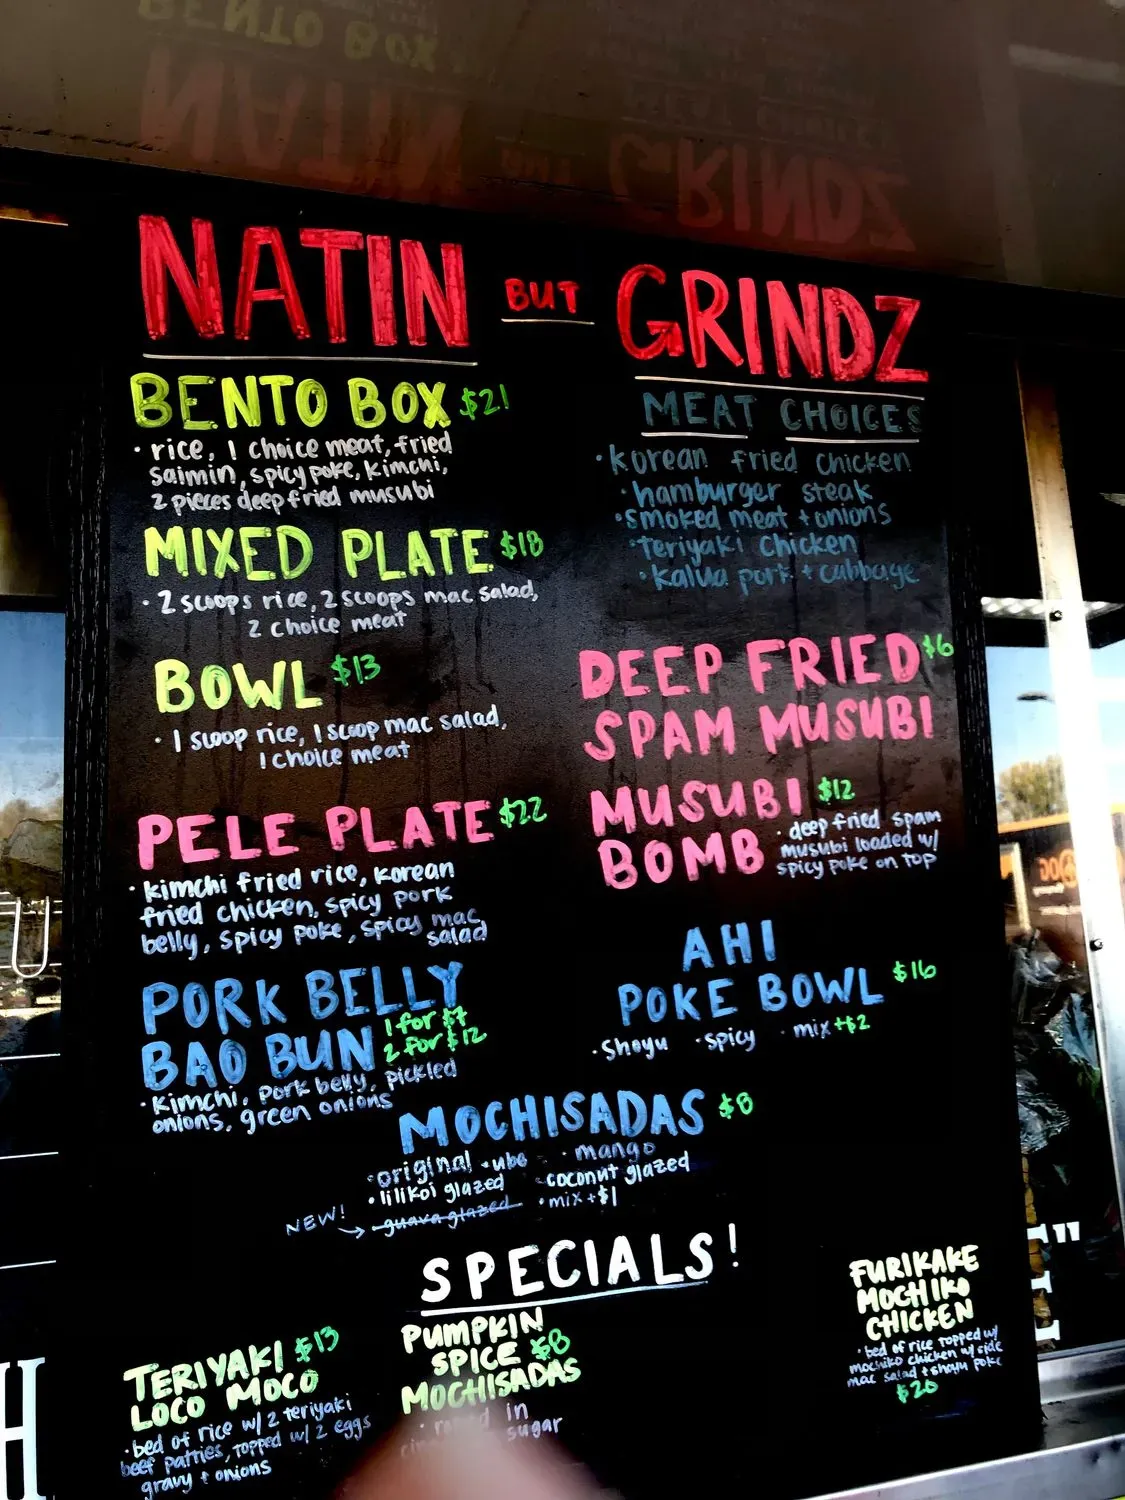 NATIN BUT GRINDZ
BENTO BOX $21
· rice, 1 choice meat, fried
saimin, spicy poke, kimchi,
2 pieces deep fried musubi
MIXED PLATE $18
· 2 scoops rice, 2 scoops mac salad,
2 choice meat
BOWL $13
· 1 scoop rice, 1 scoop mac salad,
1 choice meat
PELE PLATE $22
· kimchi fried rice, korean
fried chicken, spicy pork
belly, spicy poke, spicy mac
salad
PORK BELLY
BAO BUN 1 for $7
2 for $12
· Kimchi, pork belly, pickled
onions, green onions
MEAT CHOICES
· korean fried chicken
· hamburger steak
· smoked meat + onions
· teriyaki chicken
· kalua pork + cabbage
DEEP FRIED $6
SPAM MUSUBI
MUSUBI $12
BOMB
· deep fried spam
musubi loaded w/
spicy poke on top
AHI
POKE BOWL $16
· shoyu · spicy · mix +$2
MOCHISADAS $8
· original · ube · mango
· lilikoi glazed · coconut glazed
NEW! → guava glazed · mix +$1
SPECIALS!
TERIYAKI $13
LOCO MOCO
· bed of rice w/ 2 teriyaki
beef patties, topped w/ 2 eggs
gravy + onions
PUMPKIN
SPICE $8
MOCHISADAS
in
sugar
FURIKAKE
MOCHIKO
CHICKEN
· bed of rice topped w/
mochiko chicken w/ side
mac salad + shoyu poke
$20